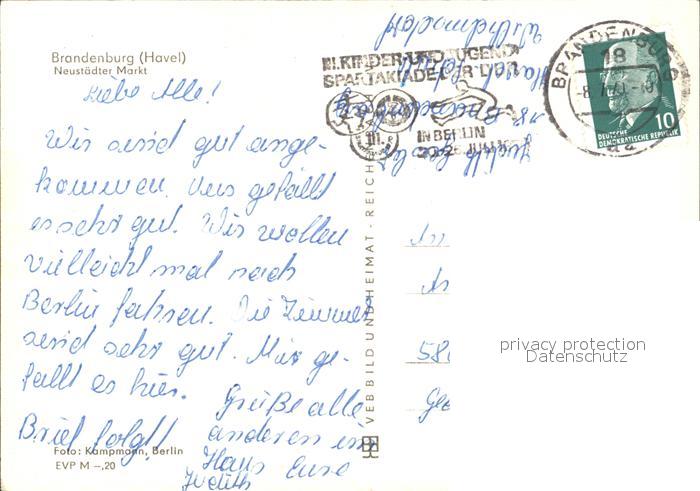 Brandenburg (Havel)
Neustädter Markt
Liebe Alle!
Wir sind gut ange-
kommen. Uns gefällt
es sehr gut. Wir wollen
vielleicht mal nach
Berlin fahren. Die Zimmer
sind sehr gut. Mir ge-
fällt es hier.
Brief folgt!
Grüße alle
anderen im
Haus Eure
Judith
Foto: Kampmann, Berlin
EVP M –,20
VEB BILD UND HEIMAT · REICH
III. KINDER- UND JUGEND-
SPARTAKIADE DER DDR
III.
IN BERLIN
BRANDENBURG
18
DEUTSCHE
DEMOKRATISCHE REPUBLIK
10
Judith
18 Brandenburg
58
privacy protection
Datenschutz